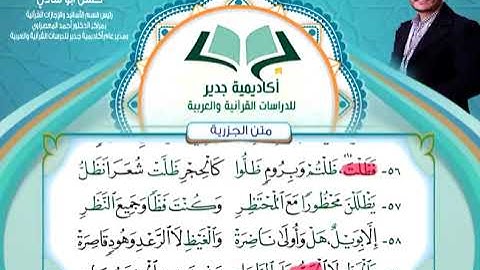 رئيس قسم الأسانيد والإجازات القرآنية
بمراكز الدكتور أحمد المعصراوي
ومدير عام أكاديمية جدير للدراسات القرآنية والعربية
أكاديمية جدير
للدراسات القرآنية والعربية
متن الجزرية
٥٦- فَظَلْتَ، ظَلْتُمْ، وَبِرُومٍ ظَلُّوا كَالْحِجْرِ، ظَلَّتْ شُعَرَا نَظَلُّ
٥٧- يَظْلَلْنَ، مَحْظُورًا مَعَ الْمُحْتَظِرِ وَكُنْتَ فَظًّا، وَجَمِيعِ النَّظَرِ
٥٨- إِلَّا بِوَيْلٌ، هَلْ، وَأُولَى نَاضِرَهْ وَالْغَيْظِ لَا الرَّعْدُ وَهُودٌ قَاصِرَهْ